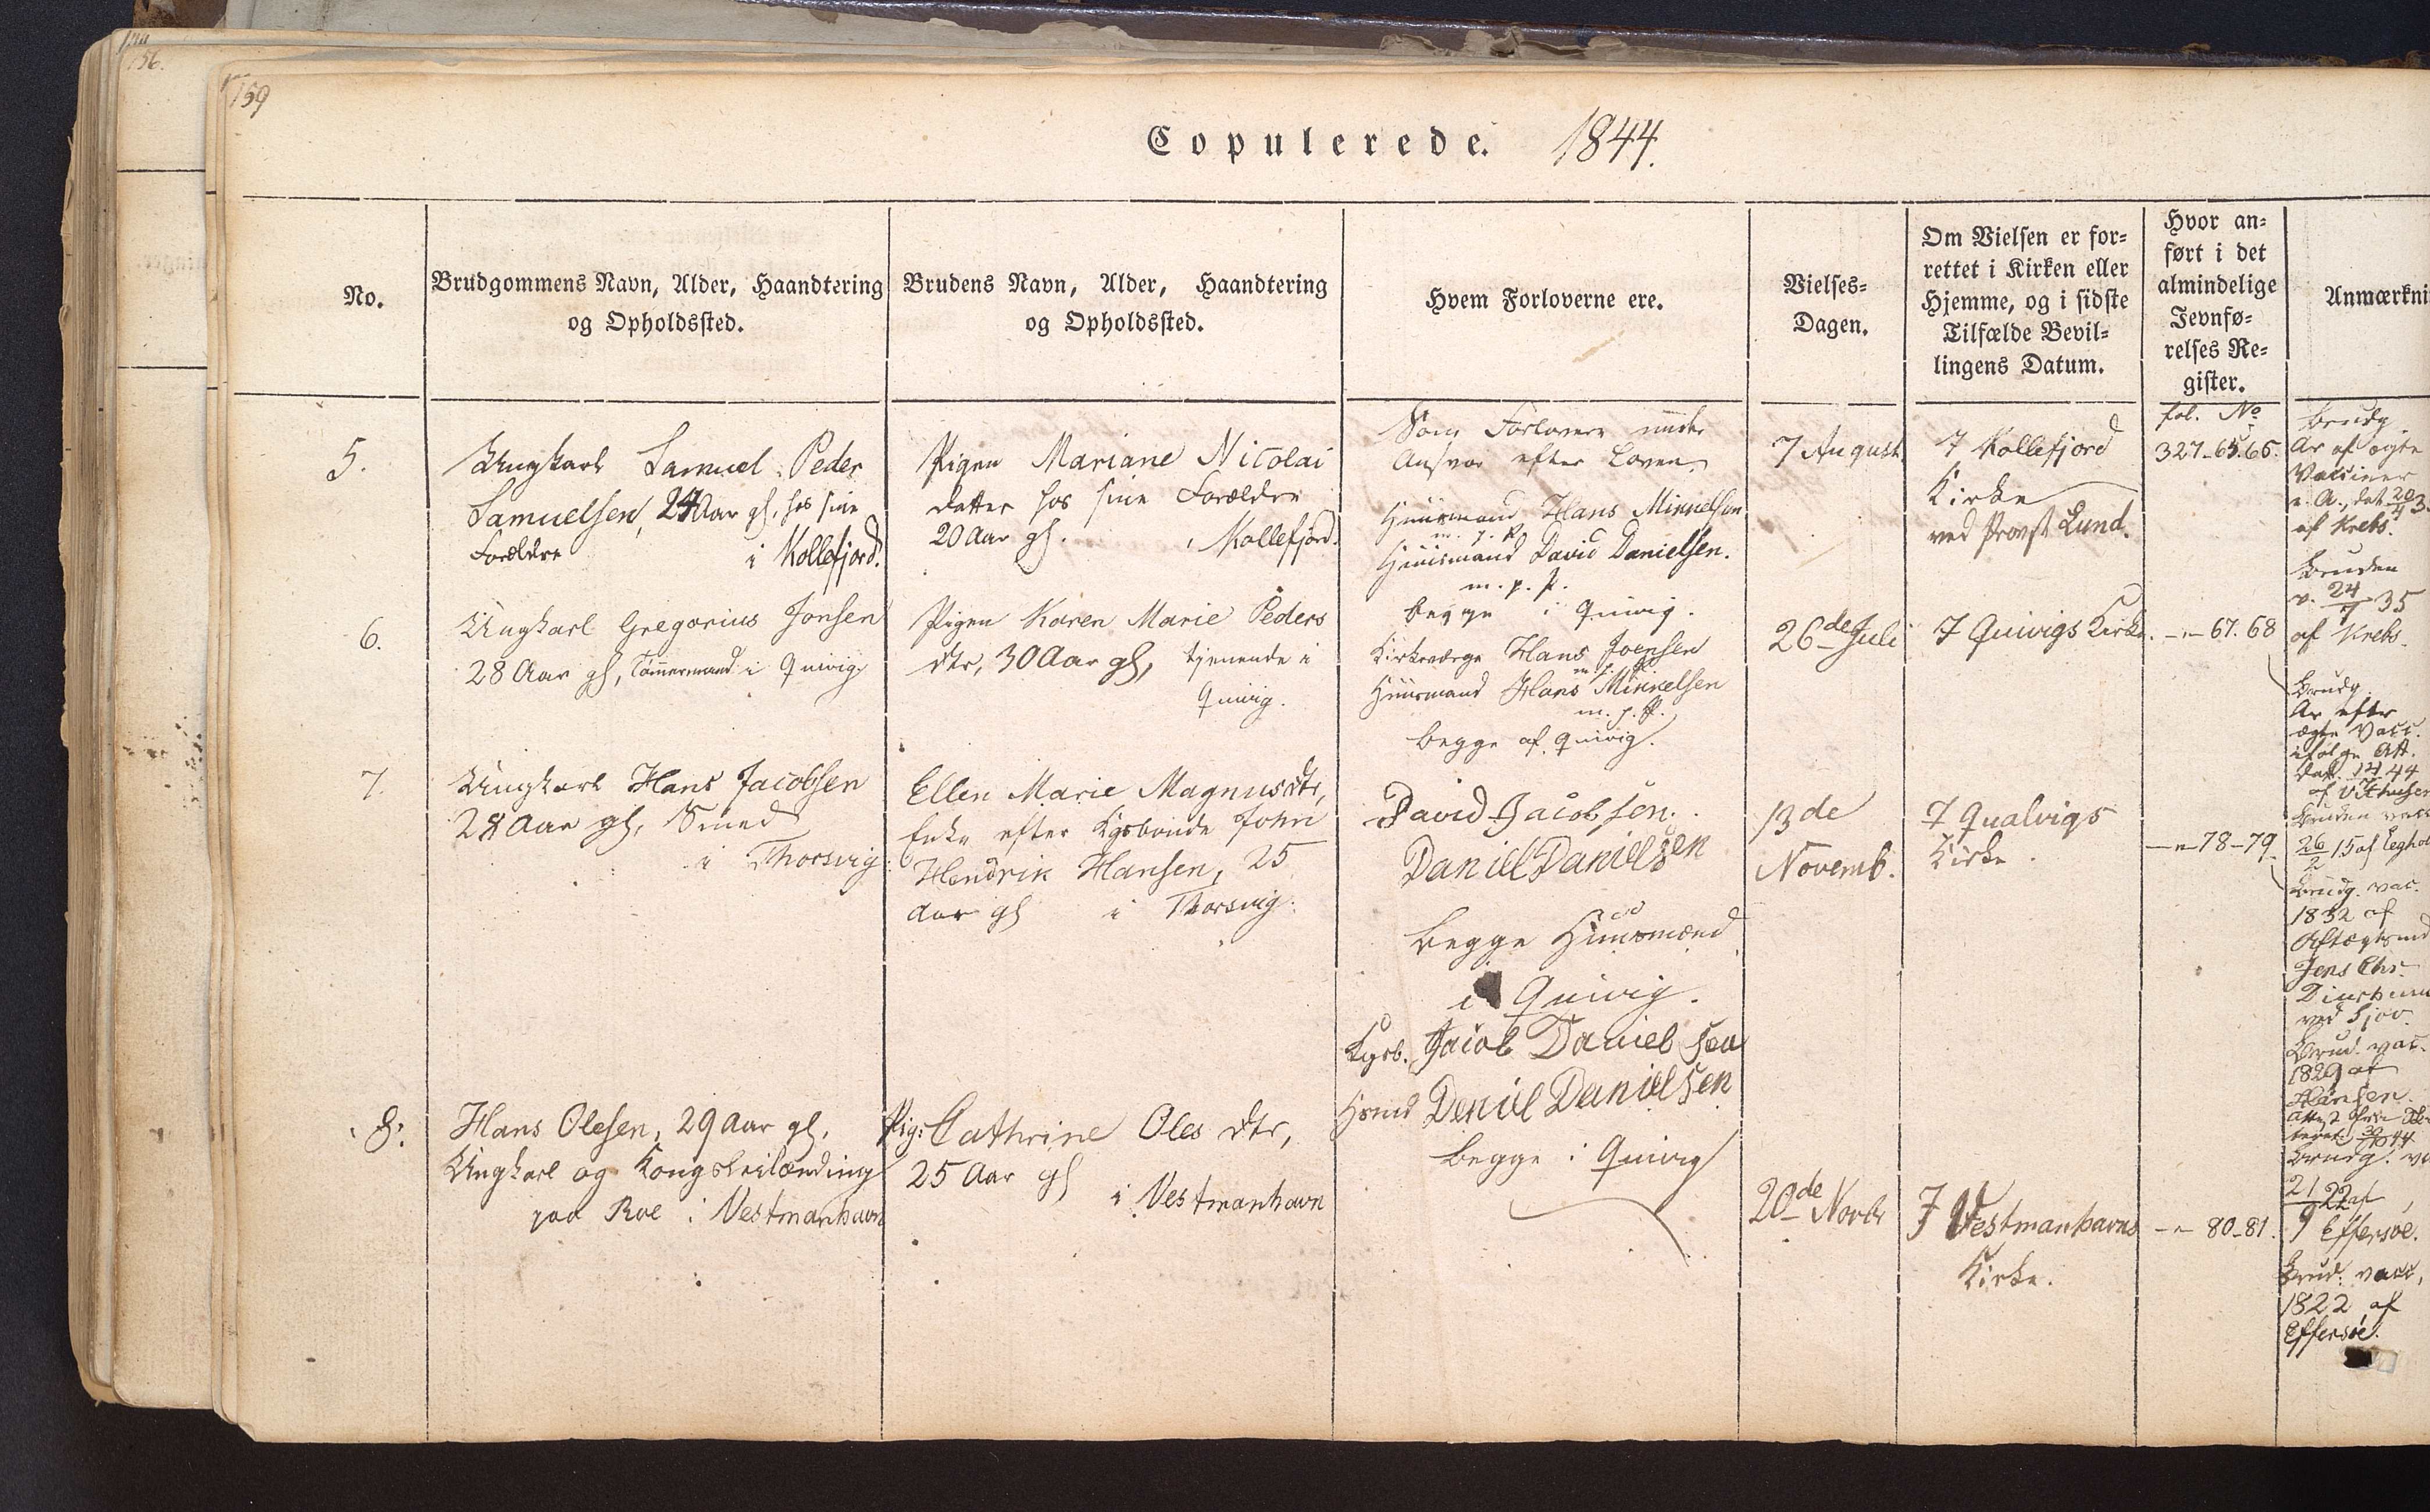 156.
159
Copulerede. 1844.
No.
Brudgommens Navn, Alder, Haandtering
og Opholdssted.
Brudens Navn, Alder, Haandtering
og Opholdssted.
Hvem Forloverne ere.
Vielses-
Dagen.
Om Vielsen er for-
rettet i Kirken eller
Hjemme, og i sidste
Tilfælde Bevil-
lingens Datum.
Hvor an-
ført i det
almindelige
Jevnfø-
relses Re-
gister.
Anmærkni
5.
Ungkarl Samuel Peder
Samuelsen, 24 Aar gl. hos sine
Forældre i Kollefjord.
Pigen Mariane Nicolai
datter hos sine Forældre
20 Aar gl. i Kollefjord.
Som Forlovere under
Ansvar efter Loven
Huusmand Hans Minnelsen
m. p. P.
Huusmand David Danielsen.
m. p. P.
begge i Quivig.
7 August.
I Kollefjord
Kirke
ved Provst Lund.
fol. No
327-65.66.
Brudg.
Ar af ægte
Vacciner
e. A., dat 20/4 3
af Krebs.
Bruden
v. 24/7 35
af Krebs.
6.
Ungkarl Gregorius Jonsen
28 Aar gl, Tømmermand i Quivig
Pigen Karen Marie Peders
dtr, 30 Aar gl, tjenende i
Quivig.
Kirkeværge Hans Joensen
m. p. P.
Huusmand Hans Minnelsen
m. p. P.
begge af Quivig.
26de Juli
I Quivigs Kirke.
-"- 67. 68
Brudg.
Ar efter
ægte Vacc.
ifølge Att.
Dat. 14 44
af
Bruden vacc
26/2 15 af
7.
Ungkarl Hans Jacobsen
28 Aar gl, Smed
i Thorsvig
Ellen Marie Magnusdtr,
Enke efter Kgsbonde John
Hendrik Hansen, 25
Aar gl i Thorsvig.
David Jacobsen.
Daniel Danielsen
begge Huusmænd
i Quivig.
13de
Novemb.
I Qualvigs
Kirke.
-"- 78-79
Brudg. vac.
1832 af
Aftægtsmd
Jens Chr.
ved
Brud. vac.
1829 af
Hansen.
8.
Hans Olesen, 29 Aar gl,
Ungkarl og Kongsleilænding
paa Roe i Vestmanhavn
Pig: Cathrine Oles dtr,
25 Aar gl
i Vestmanhavn
Kgsb. Jacob Danielsen
Hsmd Deniel Danielsen
begge i Quivig
20de Novbr
I Vestmanhavns
Kirke.
-"- 80-81.
Brudg. va
21/9 22 af
Effersøe.
Brud. vacc,
1822 af
Effersøe.